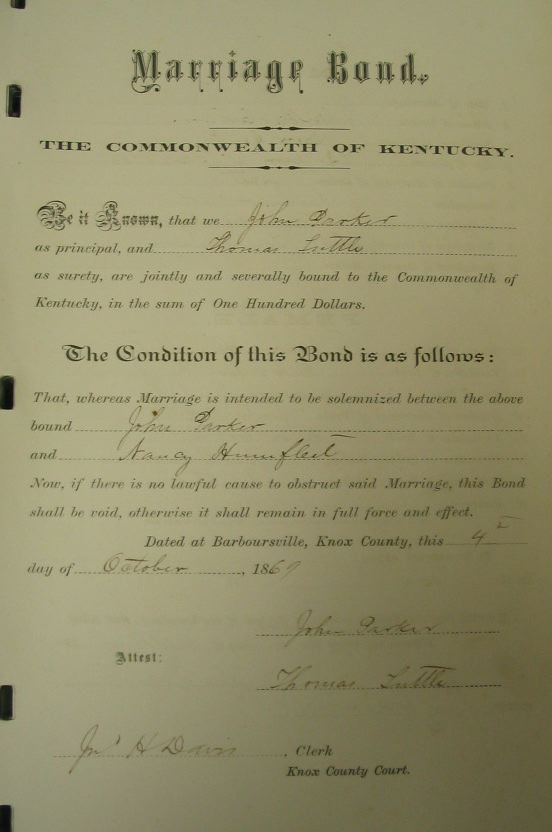 Marriage Bond.
THE COMMONWEALTH OF KENTUCKY.
Be it Known, that we John Parker
as principal, and Thomas Tuttle
as surety, are jointly and severally bound to the Commonwealth of
Kentucky, in the sum of One Hundred Dollars.
The Condition of this Bond is as follows:
That, whereas Marriage is intended to be solemnized between the above
bound John Parker
and Nancy Humfleet
Now, if there is no lawful cause to obstruct said Marriage, this Bond
shall be void, otherwise it shall remain in full force and effect.
Dated at Barboursville, Knox County, this 4
day of October, 1869
John Parker
Attest:
Thomas Tuttle
Jno H Davis, Clerk
Knox County Court.